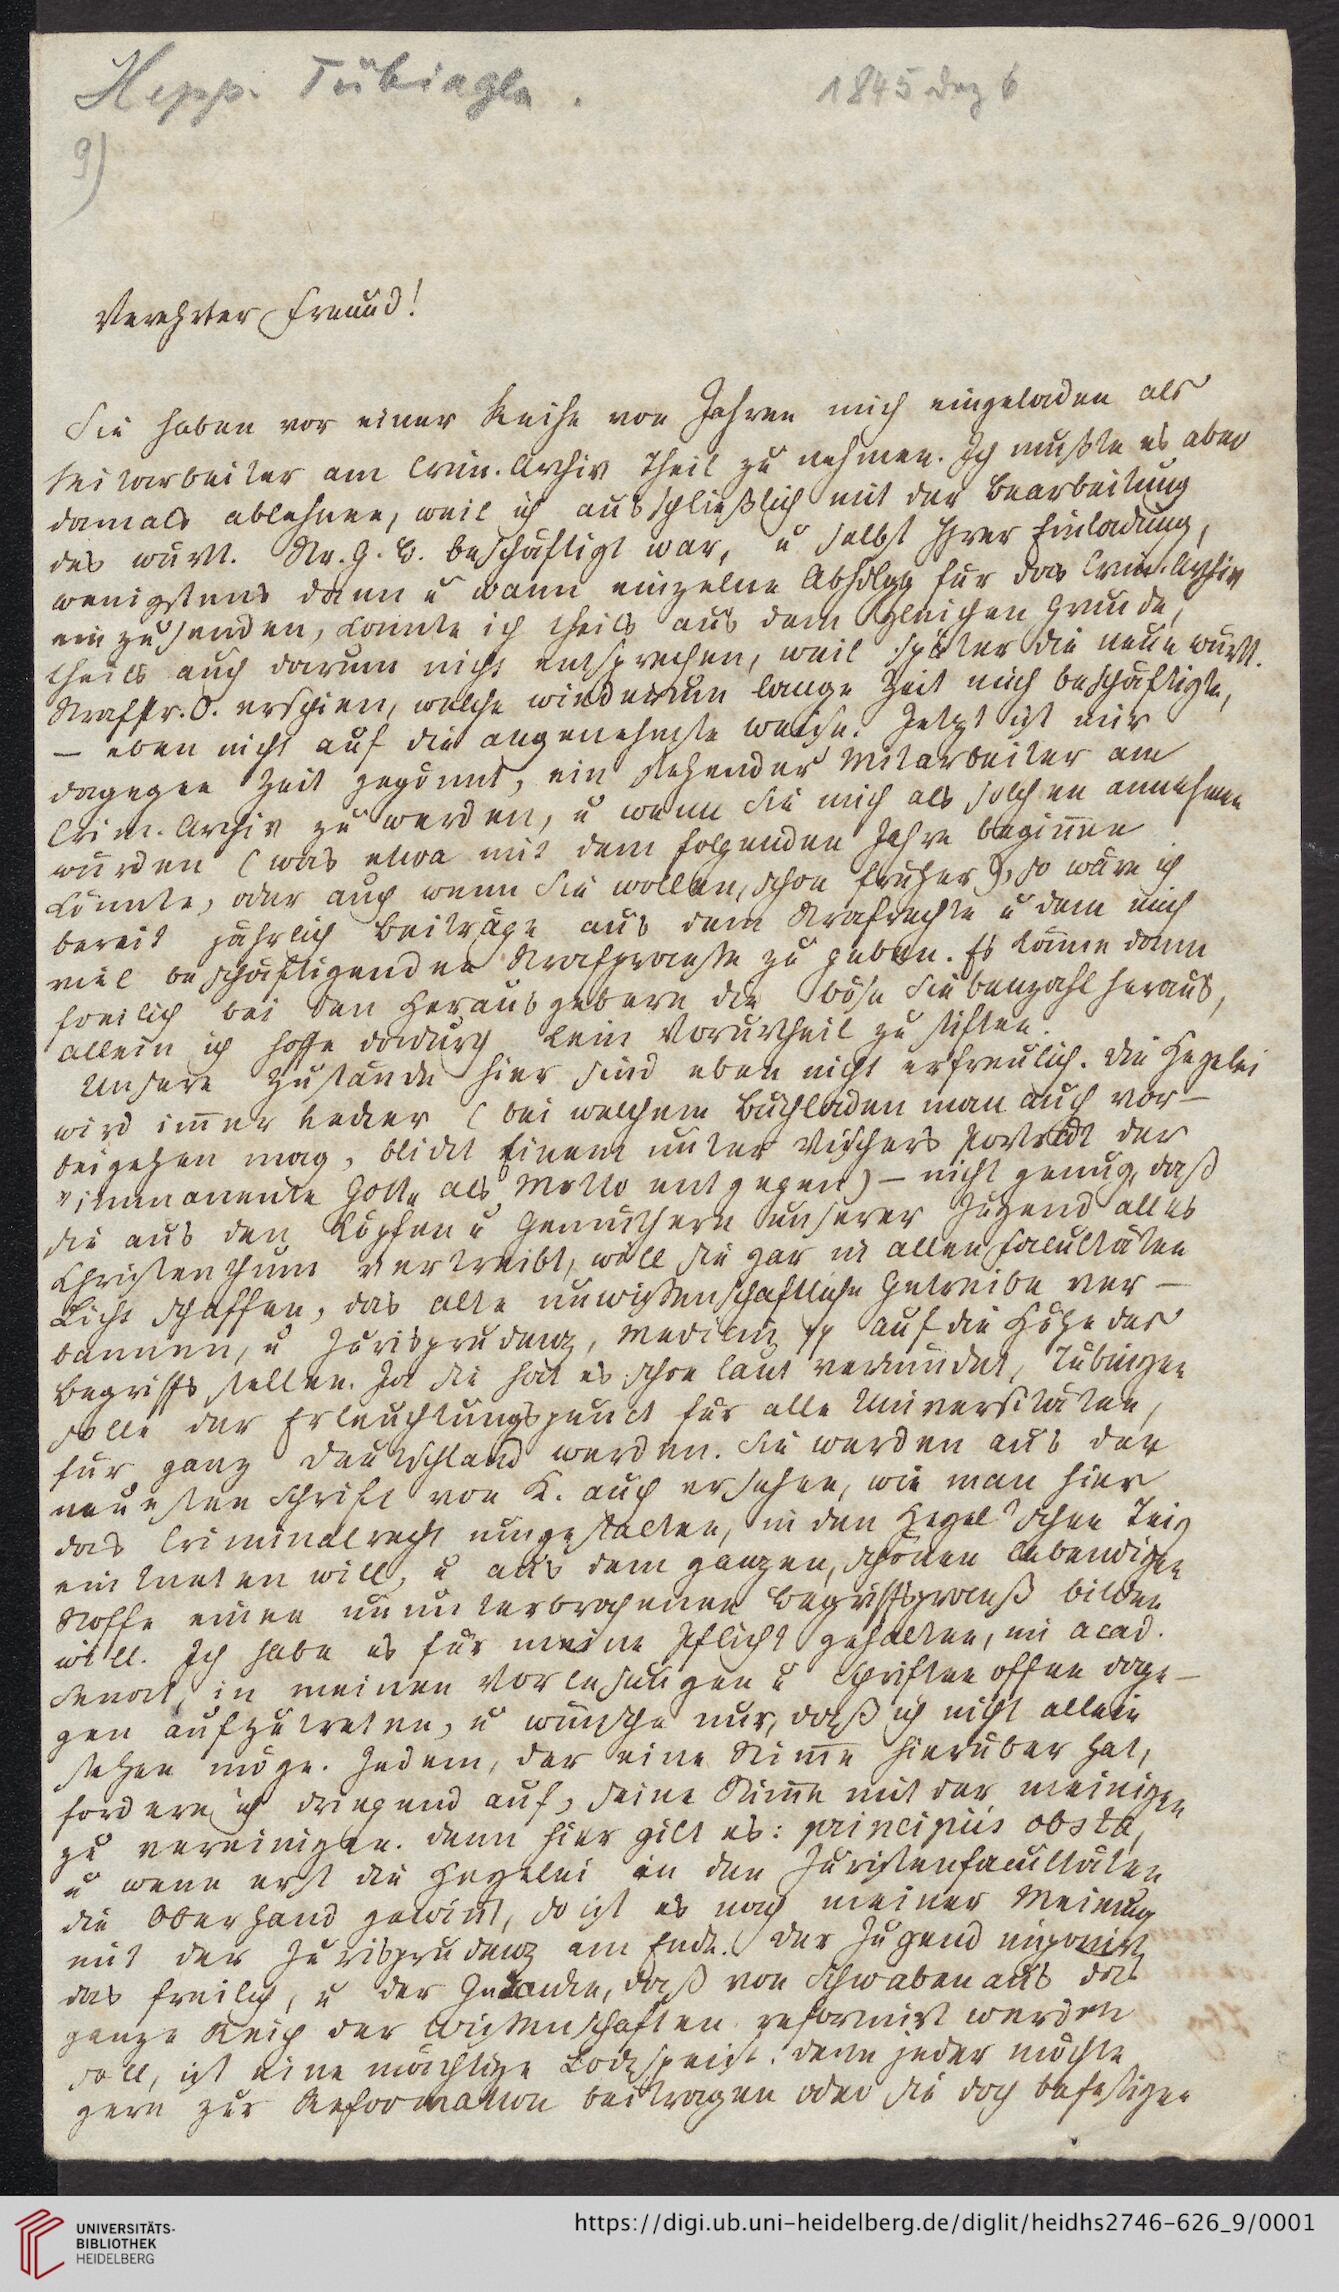 Hepp. Tübingen.
1845 Dez 6
9)
Verehrter Freund!
Sie haben vor einer Reihe von Jahren mich eingeladen als
Mitarbeiter am Crim. Archiv Theil zu nehmen. Ich mußte es aber
damals ablehnen, weil ich ausschließlich mit der Bearbeitung
des würt. Str. G. B. beschäftigt war, u selbst Ihrer Einladung,
wenigstens dann u wann einzelne Abhdlgg für das Crim. Archiv
einzusenden, konnte ich theils aus dem gleichen Grunde,
theils auch darum nicht entsprechen, weil später die neue würt.
Strafpr. O. erschien, welche wiederum lange Zeit mich beschäftigte,
– eben nicht auf die angenehmste Weise. Jetzt ist mir
dagegen Zeit gegönnt, ein stehender Mitarbeiter am
Crim. Archiv zu werden, u wenn Sie mich als solchen annehmen
würden (was etwa mit dem folgenden Jahre beginnen
könnte, oder auch wenn Sie wollen, schon früher), so wäre ich
bereit jährlich Beiträge aus dem Strafrechte u dem mich
viel beschäftigenden Strafprocesse zu geben. Es käme dann
freilich bei den Herausgebern die böse Siebenzahl heraus,
allein ich hoffe dadurch kein Vorurtheil zu stiften.
Unsere Zustände hier sind eben nicht erfreulich. Die Hegelei
wird imer kecker (bei welchem Buchladen man auch vor-
beigehen mag, blickt Einem unter Vischers Portrait der
"immanente Gott" als Motto entgegen) – nicht genug, daß
sie aus den Köpfen u Gemüthern unserer Jugend alles
Christenthum vertreibt, will sie gar in allen Facultäten
Licht schaffen, das alte unwissenschaftliche Getreibe ver-
bannen, u Jurisprudenz, Medicin pp auf die Höhe des
Begriffs stellen. Ja sie hat es schon laut verkündet, Tübingen
solle der Erleuchtungspunct für alle Universitäten,
für ganz Deutschland werden. Sie werden aus der
neuesten Schrift von K. auch ersehen, wie man hier
das Criminalrecht umgestalten, in den Hegel'schen Teig
einkneten will, u aus dem ganzen, schönen lebendigen
Stoffe einen ununterbrochenen Begriffsproceß bilden
will. Ich habe es für meine Pflicht gehalten, im acad.
Senat, in meinen Vorlesungen u Schriften offen dage-
gen aufzutreten, u wünsche nur, daß ich nicht allein
stehen möge. Jedem, der eine Stime hierüber hat,
fordere ich dringend auf, seine Stime mit der meinigen
zu vereinigen. Denn hier gilt es: principiis obsta,
u wenn erst die Hegelei in den Juristenfacultäten
die Oberhand gewint, so ist es nach meiner Meinung
mit der Jurisprudenz am Ende. Der Jugend imponirt
das freilich, u der Gedanke, daß von Schwaben aus das
ganze Reich der Wissenschaften reformirt werden
soll, ist eine mächtige Lockspeise; denn jeder möchte
gern zur Reformation beitragen oder sie doch befestigen
UNIVERSITÄTS-
BIBLIOTHEK
HEIDELBERG
https://digi.ub.uni-heidelberg.de/diglit/heidhs2746-626_9/0001